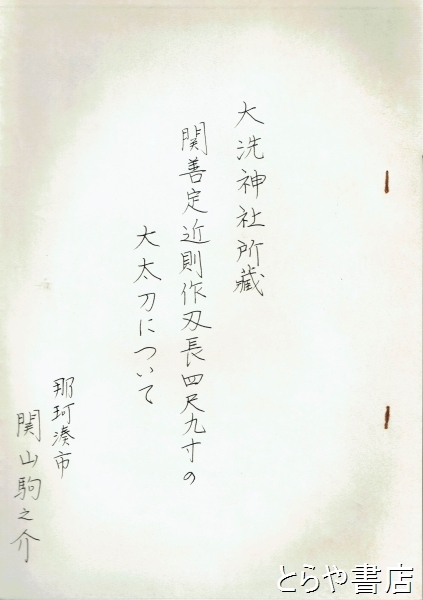 大洗神社所蔵
関善定近則作刄長四尺九寸の
大太刀について
那珂湊市
関山駒之介
とらや書店